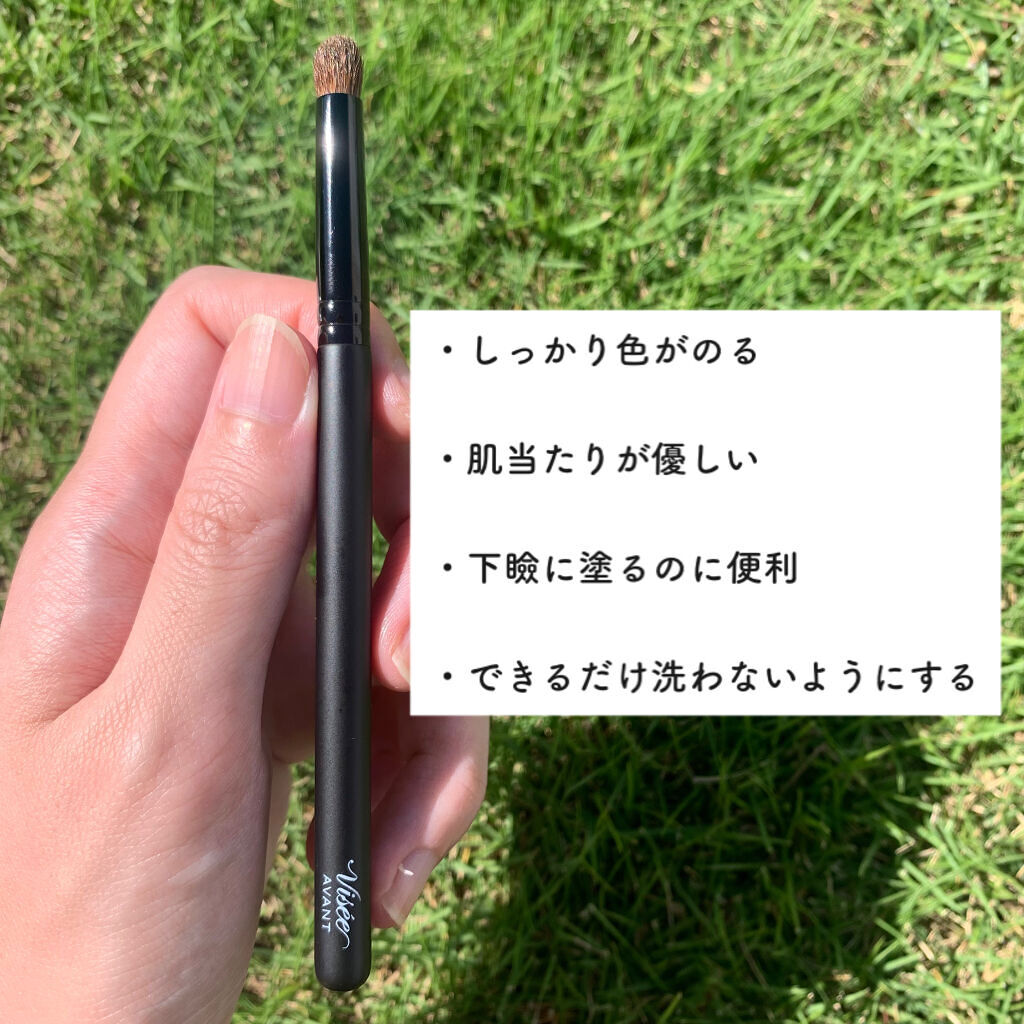 ・しっかり色がのる
・肌当たりが優しい
・下瞼に塗るのに便利
・できるだけ洗わないようにする
Visée
AVANT